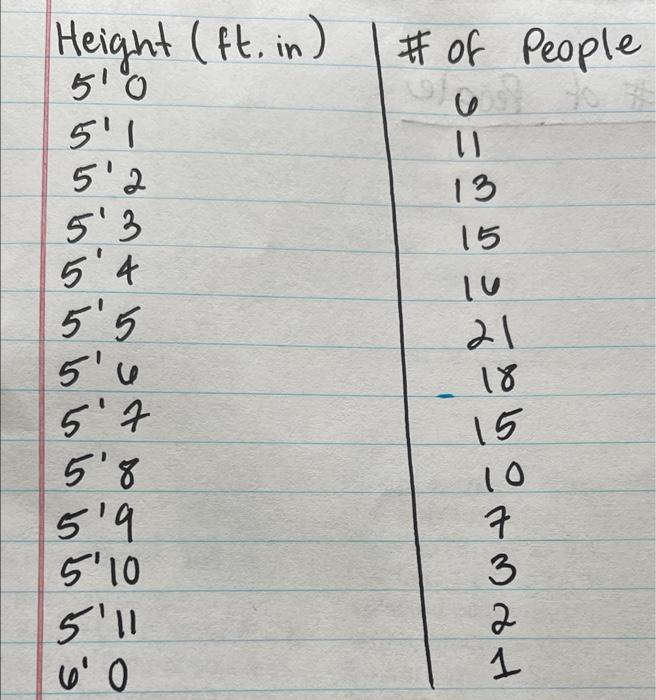 Height (ft. in) # of People
5'0 6
5'1 11
5'2 13
5'3 15
5'4 16
5'5 21
5'6 18
5'7 15
5'8 10
5'9 7
5'10 3
5'11 2
6'0 1